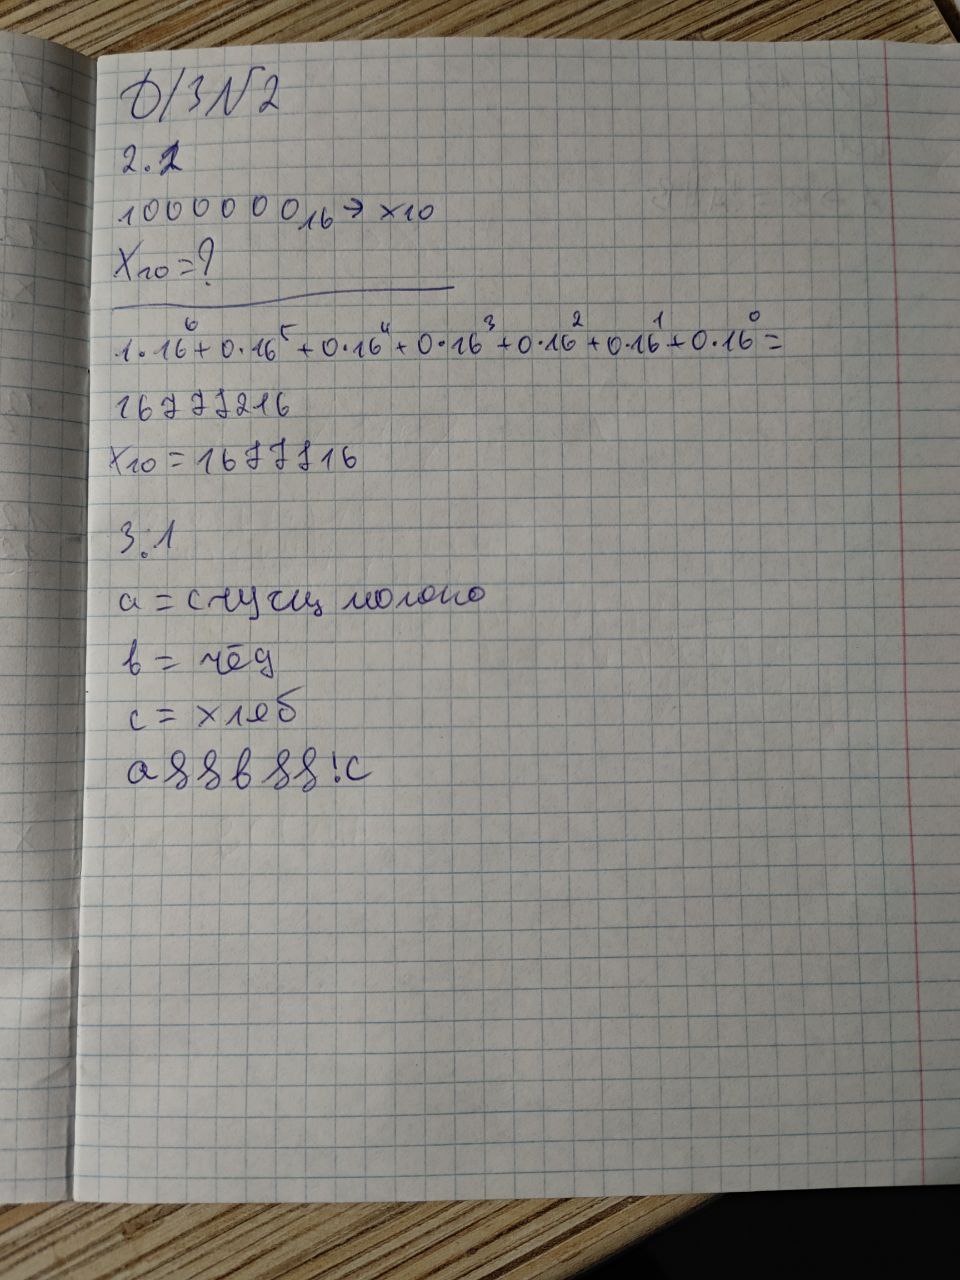 Д/З №2
2.1
1000000₁₆ → x10
X₁₀ = ?
1·16⁶ + 0·16⁵ + 0·16⁴ + 0·16³ + 0·16² + 0·16¹ + 0·16⁰ =
16777216
X₁₀ = 1677716
3.1
a = сгущ молоко
b = мёд
c = хлеб
a && b && !c